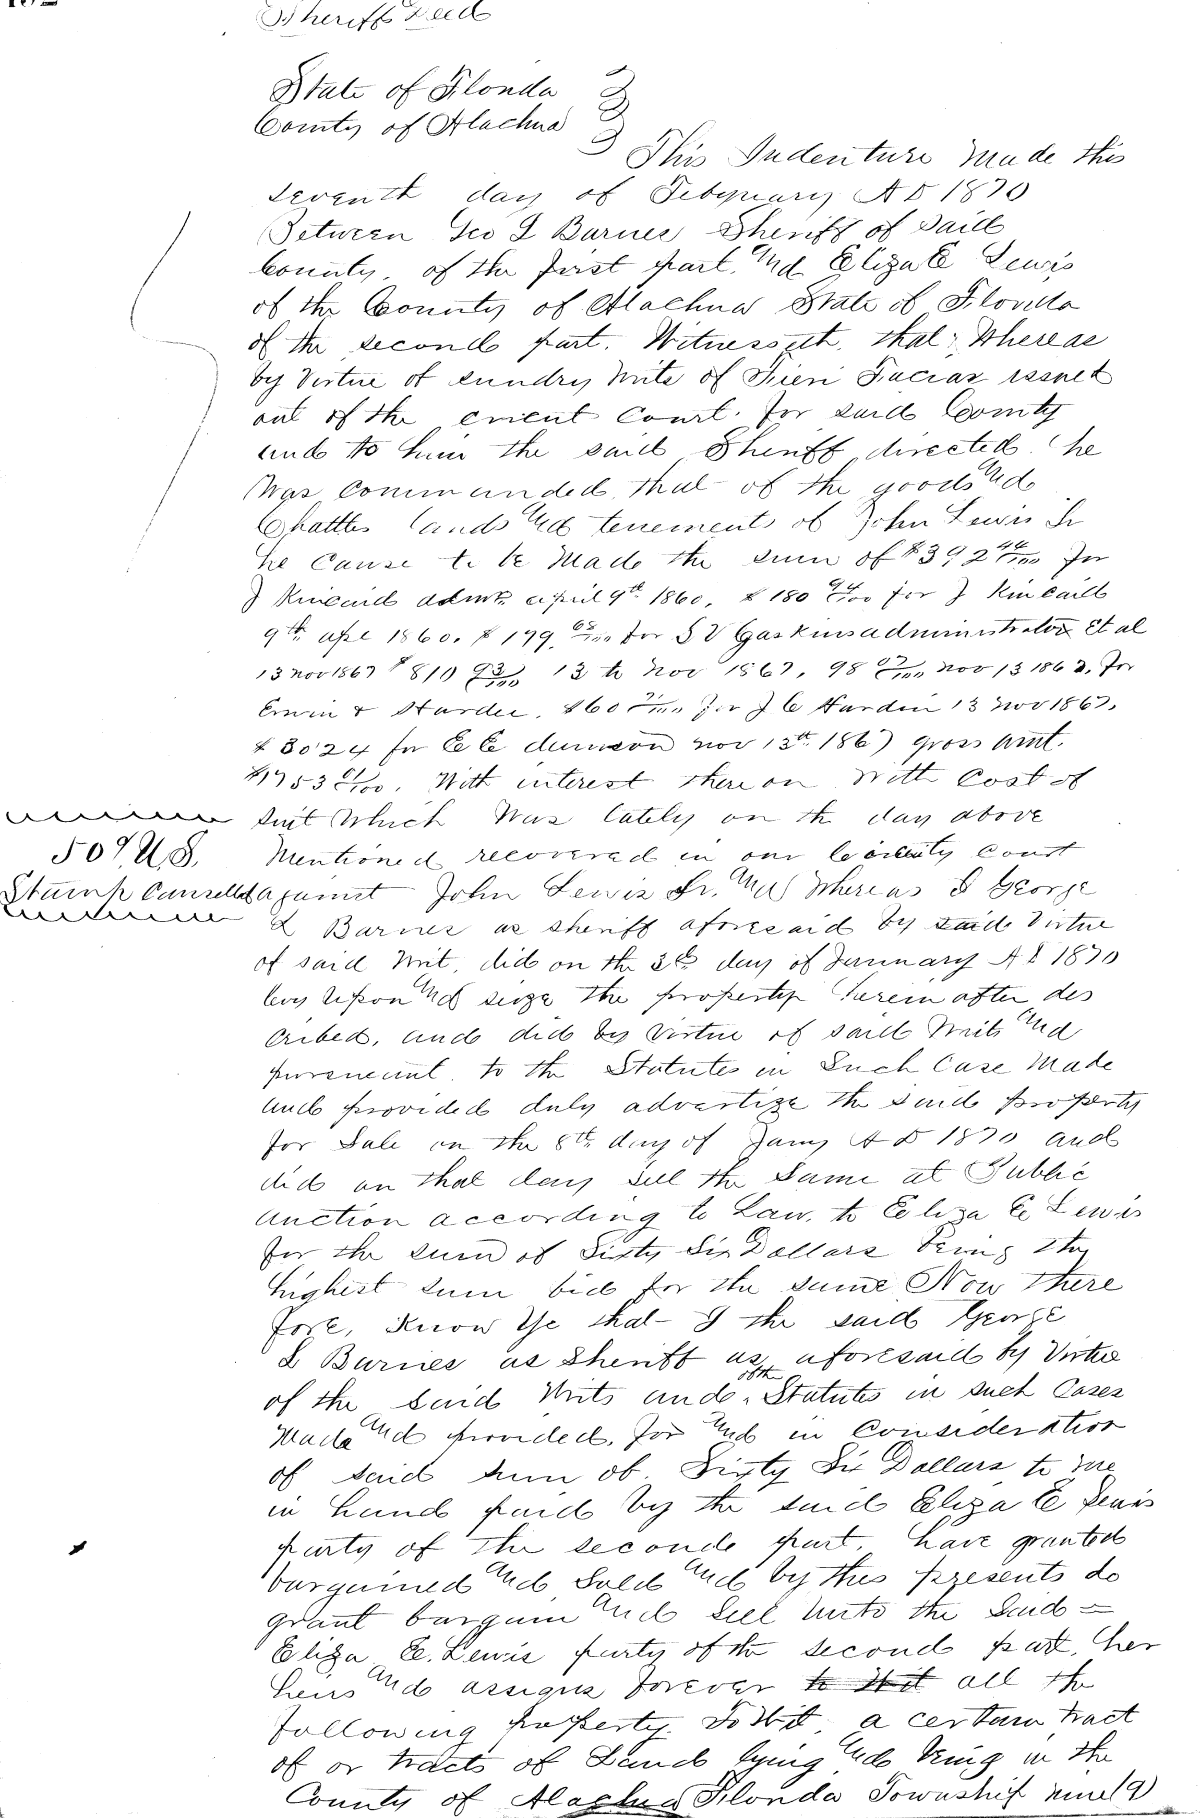 Sheriff Deed
State of Florida
County of Alachua
This Indenture made this
seventh day of Febquary AD 1870
Between Geo L Barnes Sheriff of said
County, of the first part, And Eliza E Lewis
of the County of Alachua State of Florida
of the second part. Witnesseth, that, Whereas
by Virtue of sundry Writs of Fieri Facias issued
out of the circuit Court for said County
and to him the said Sheriff directed he
Was commanded that of the goods And
Chattles lands And tenements of John Lewis Sr
he cause to be Made the sum of $392 44/100 for
J Kincaid admr. april 9th 1860, $180 94/100 for J Kincaid
9th apl 1860. $199. /100 for S V Gaskins administrator Et al
13 nov 1867 $810 93/100 13th nov 1867, 98 /100 nov 13 1867, for
Erwin & Hardee, $60 /100 for J C Hardin 13 nov 1867,
$3024 for E E nov 13th 1867 gross amt.
$1753 /100. With interest there on With Cost of
suit Which Was lately on th day above
50¢ U.S.
Mentioned recovered in our court
Stamp Canselled
against John Lewis Sr. And Whereas I George
L Barnes as sheriff aforesaid by said Virtue
of said Writ, did on the 3d day of January AD 1870
levy Upon And seize the property herein after des
cribed, and did by Virtue of said Writs And
pursueant to the Statutes in Such Case Made
and provided duly advertize the said property
for Sale on the 8th day of Jany AD 1870 and
did on that day sell the Same at Public
auction according to Law, to Eliza E Lewis
for the sum of Sixty Six Dollars being the
highest sum bid for the same Now There
fore, Know Ye that I the said George
L Barnes as Sheriff as aforesaid by Virtue
of the said Writs and of the Statutes in such Cases
Made And provided, for And in Consideration
of said sum of Sixty Six Dollars to me
in hand paid by the said Eliza E Lewis
party of the second part, have granted
bargained And Sold And by thes presents do
grant bargain And sell Unto the Said =
Eliza E. Lewis party of the second part, her
heirs And assigns forever to Wit all the
following property To Wit, a certain tract
of or tracts of Land lying And being in the
County of Alachua Florida Township nine (9)